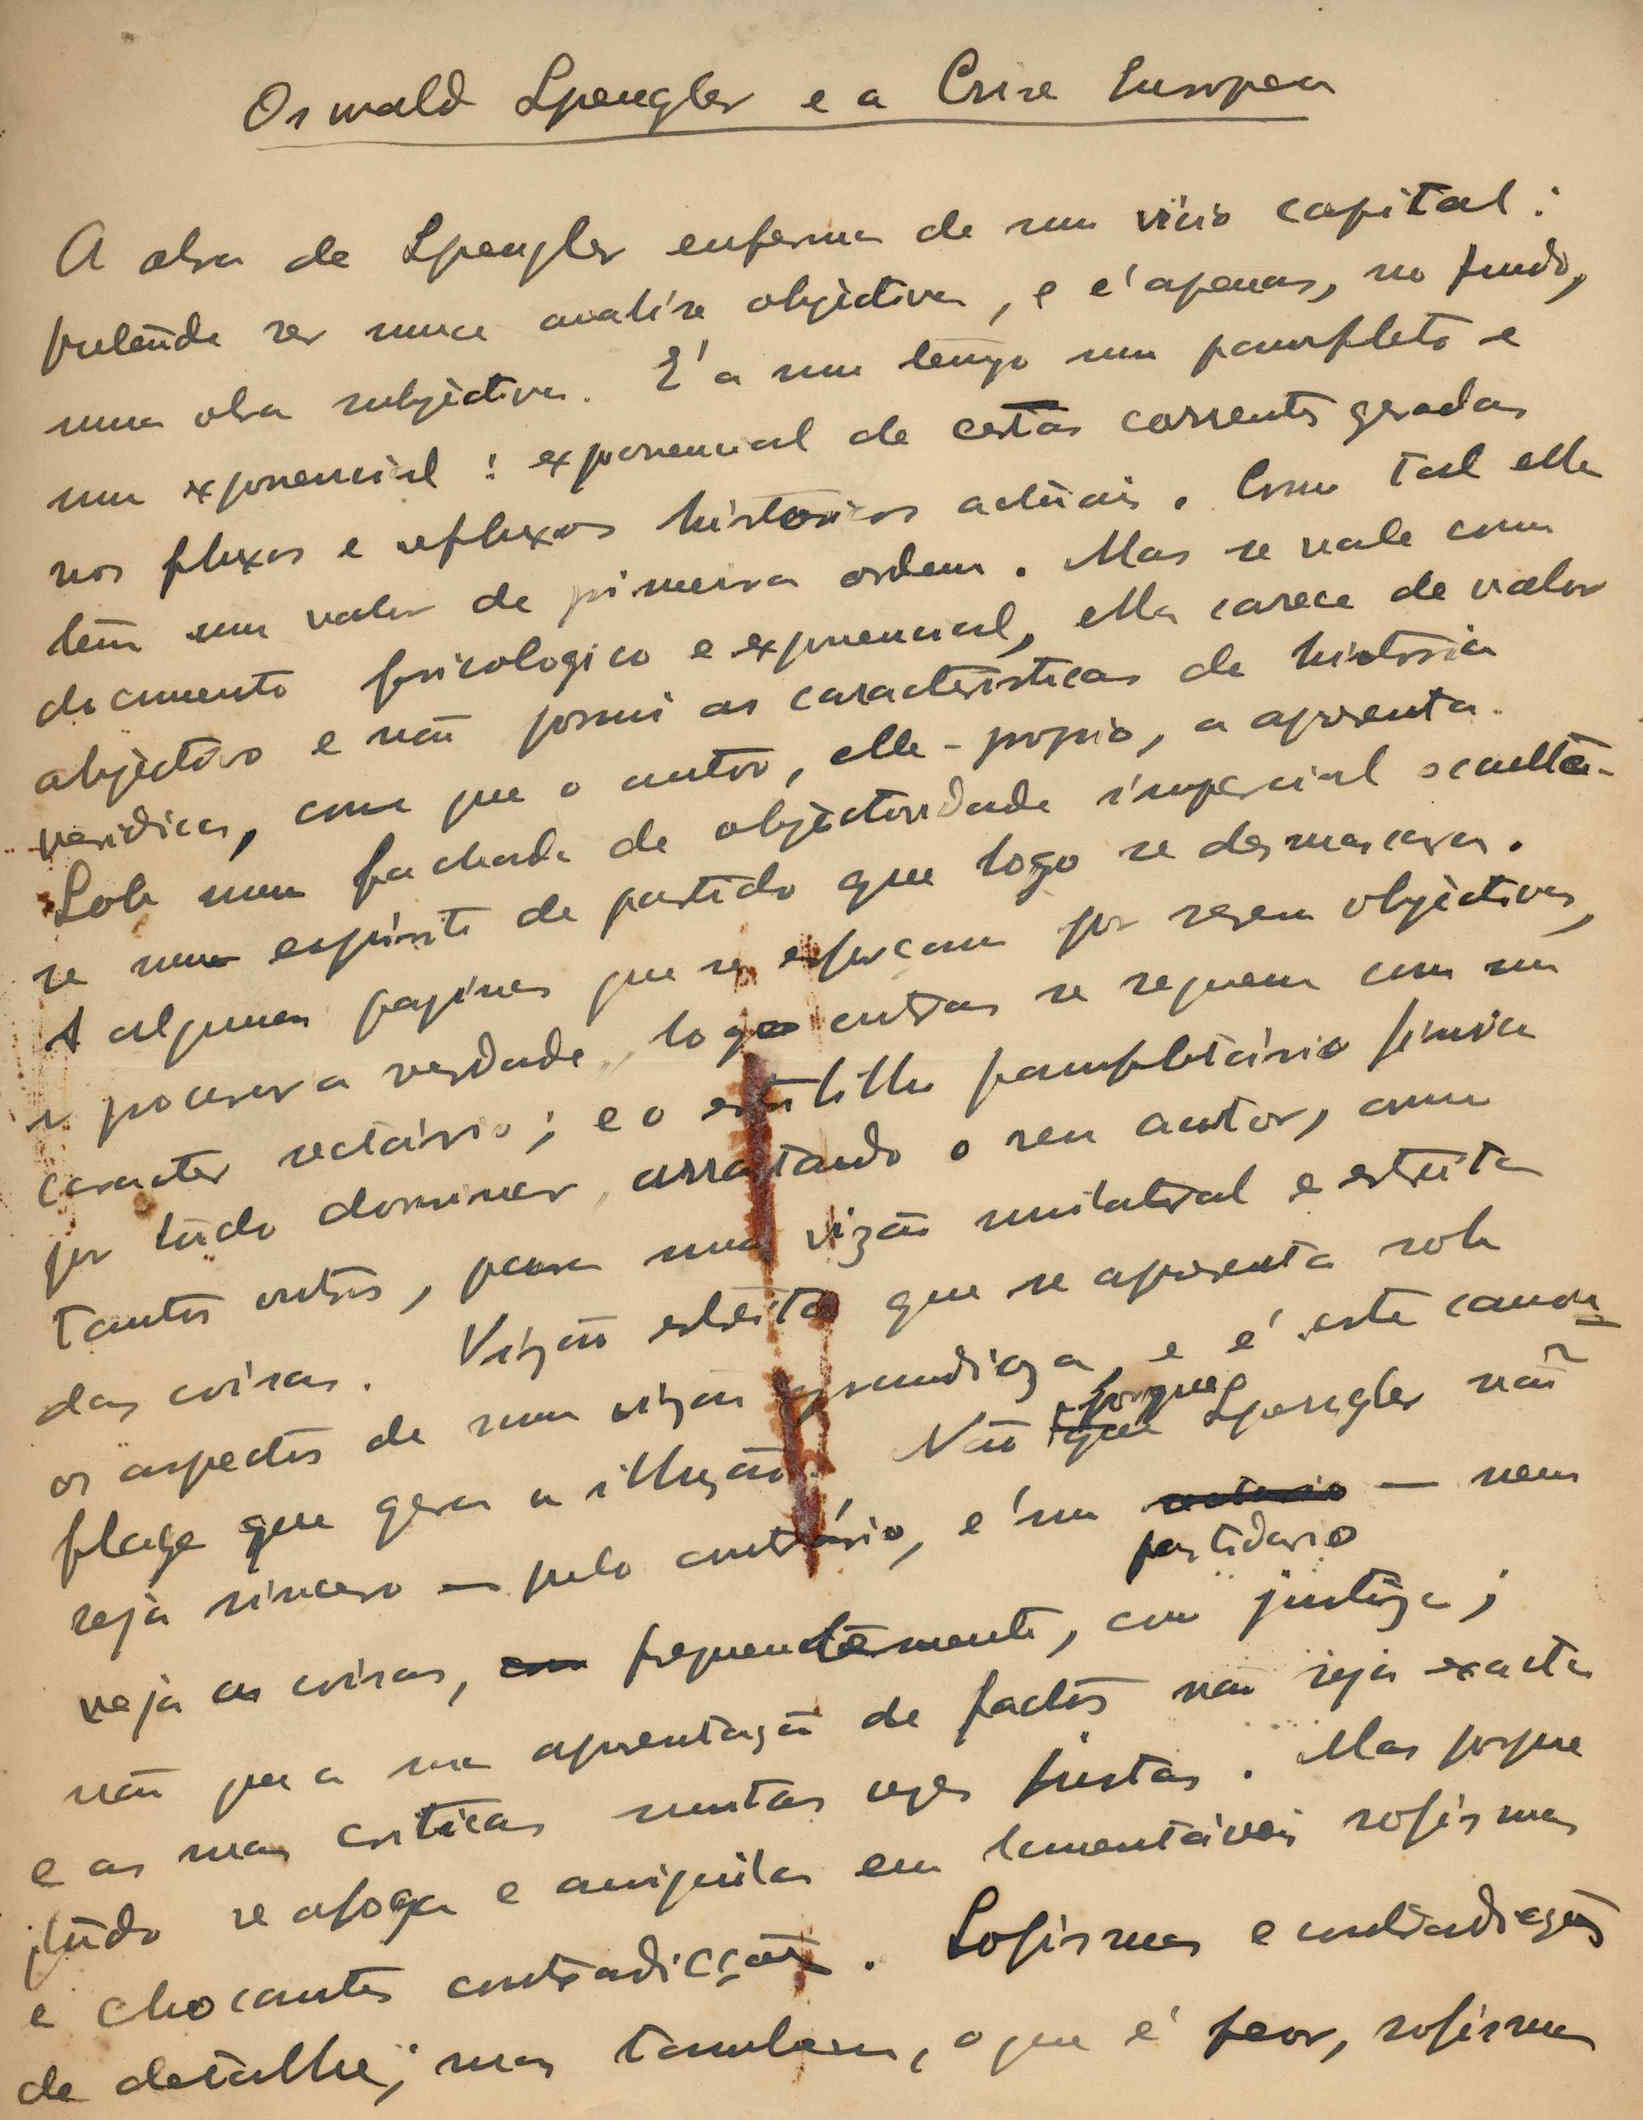 Oswald Spengler e a Crise Europea
A obra de Spengler enferma de um vicio capital:
pretende ser uma analise objectiva, e é apenas, no fundo,
uma obra subjectiva. É a um tempo um pamfleto e
um exponencial: exponencial de certas correntes geradas
nos fluxos e refluxos historicos actuais. Como tal ella
tem um valor de primeira ordem. Mas se vale como
documento psicologico e exponencial, ella carece de valor
objectivo e não possui as caracteristicas de historia
veridica, com que o autor, elle-proprio, a apresenta.
Sob uma fachada de objectividade imparcial occulta-
se um espirito de partido que logo se desmascara.
A algumas paginas que se esforçam por serem objectivas,
e procurar a verdade, logo outras se seguem com um
caracter sectário; e o estilo pamfletário finda
por tudo dominar, arrastando o seu autor, como
tantos outros, para uma vizão unilateral e estreita
das coisas. Vizão estreita que se apresenta sob
os aspectos de uma vizão grandioza, e é este camou-
flage que gera a illuzão. Não porque Spengler não
seja sincero — pelo contrário, é um partidario — nem
veja as coisas, frequentemente, com justiça;
não que a sua apresentação de factos não seja exacta
e as suas criticas muitas vezes justas. Mas porque
tudo se afoga e aniquila em lamentáveis sofismas
e chocantes contradicções. Sofismas e contradicções
de detalhe; mas tambem, o que é peor, sofisma